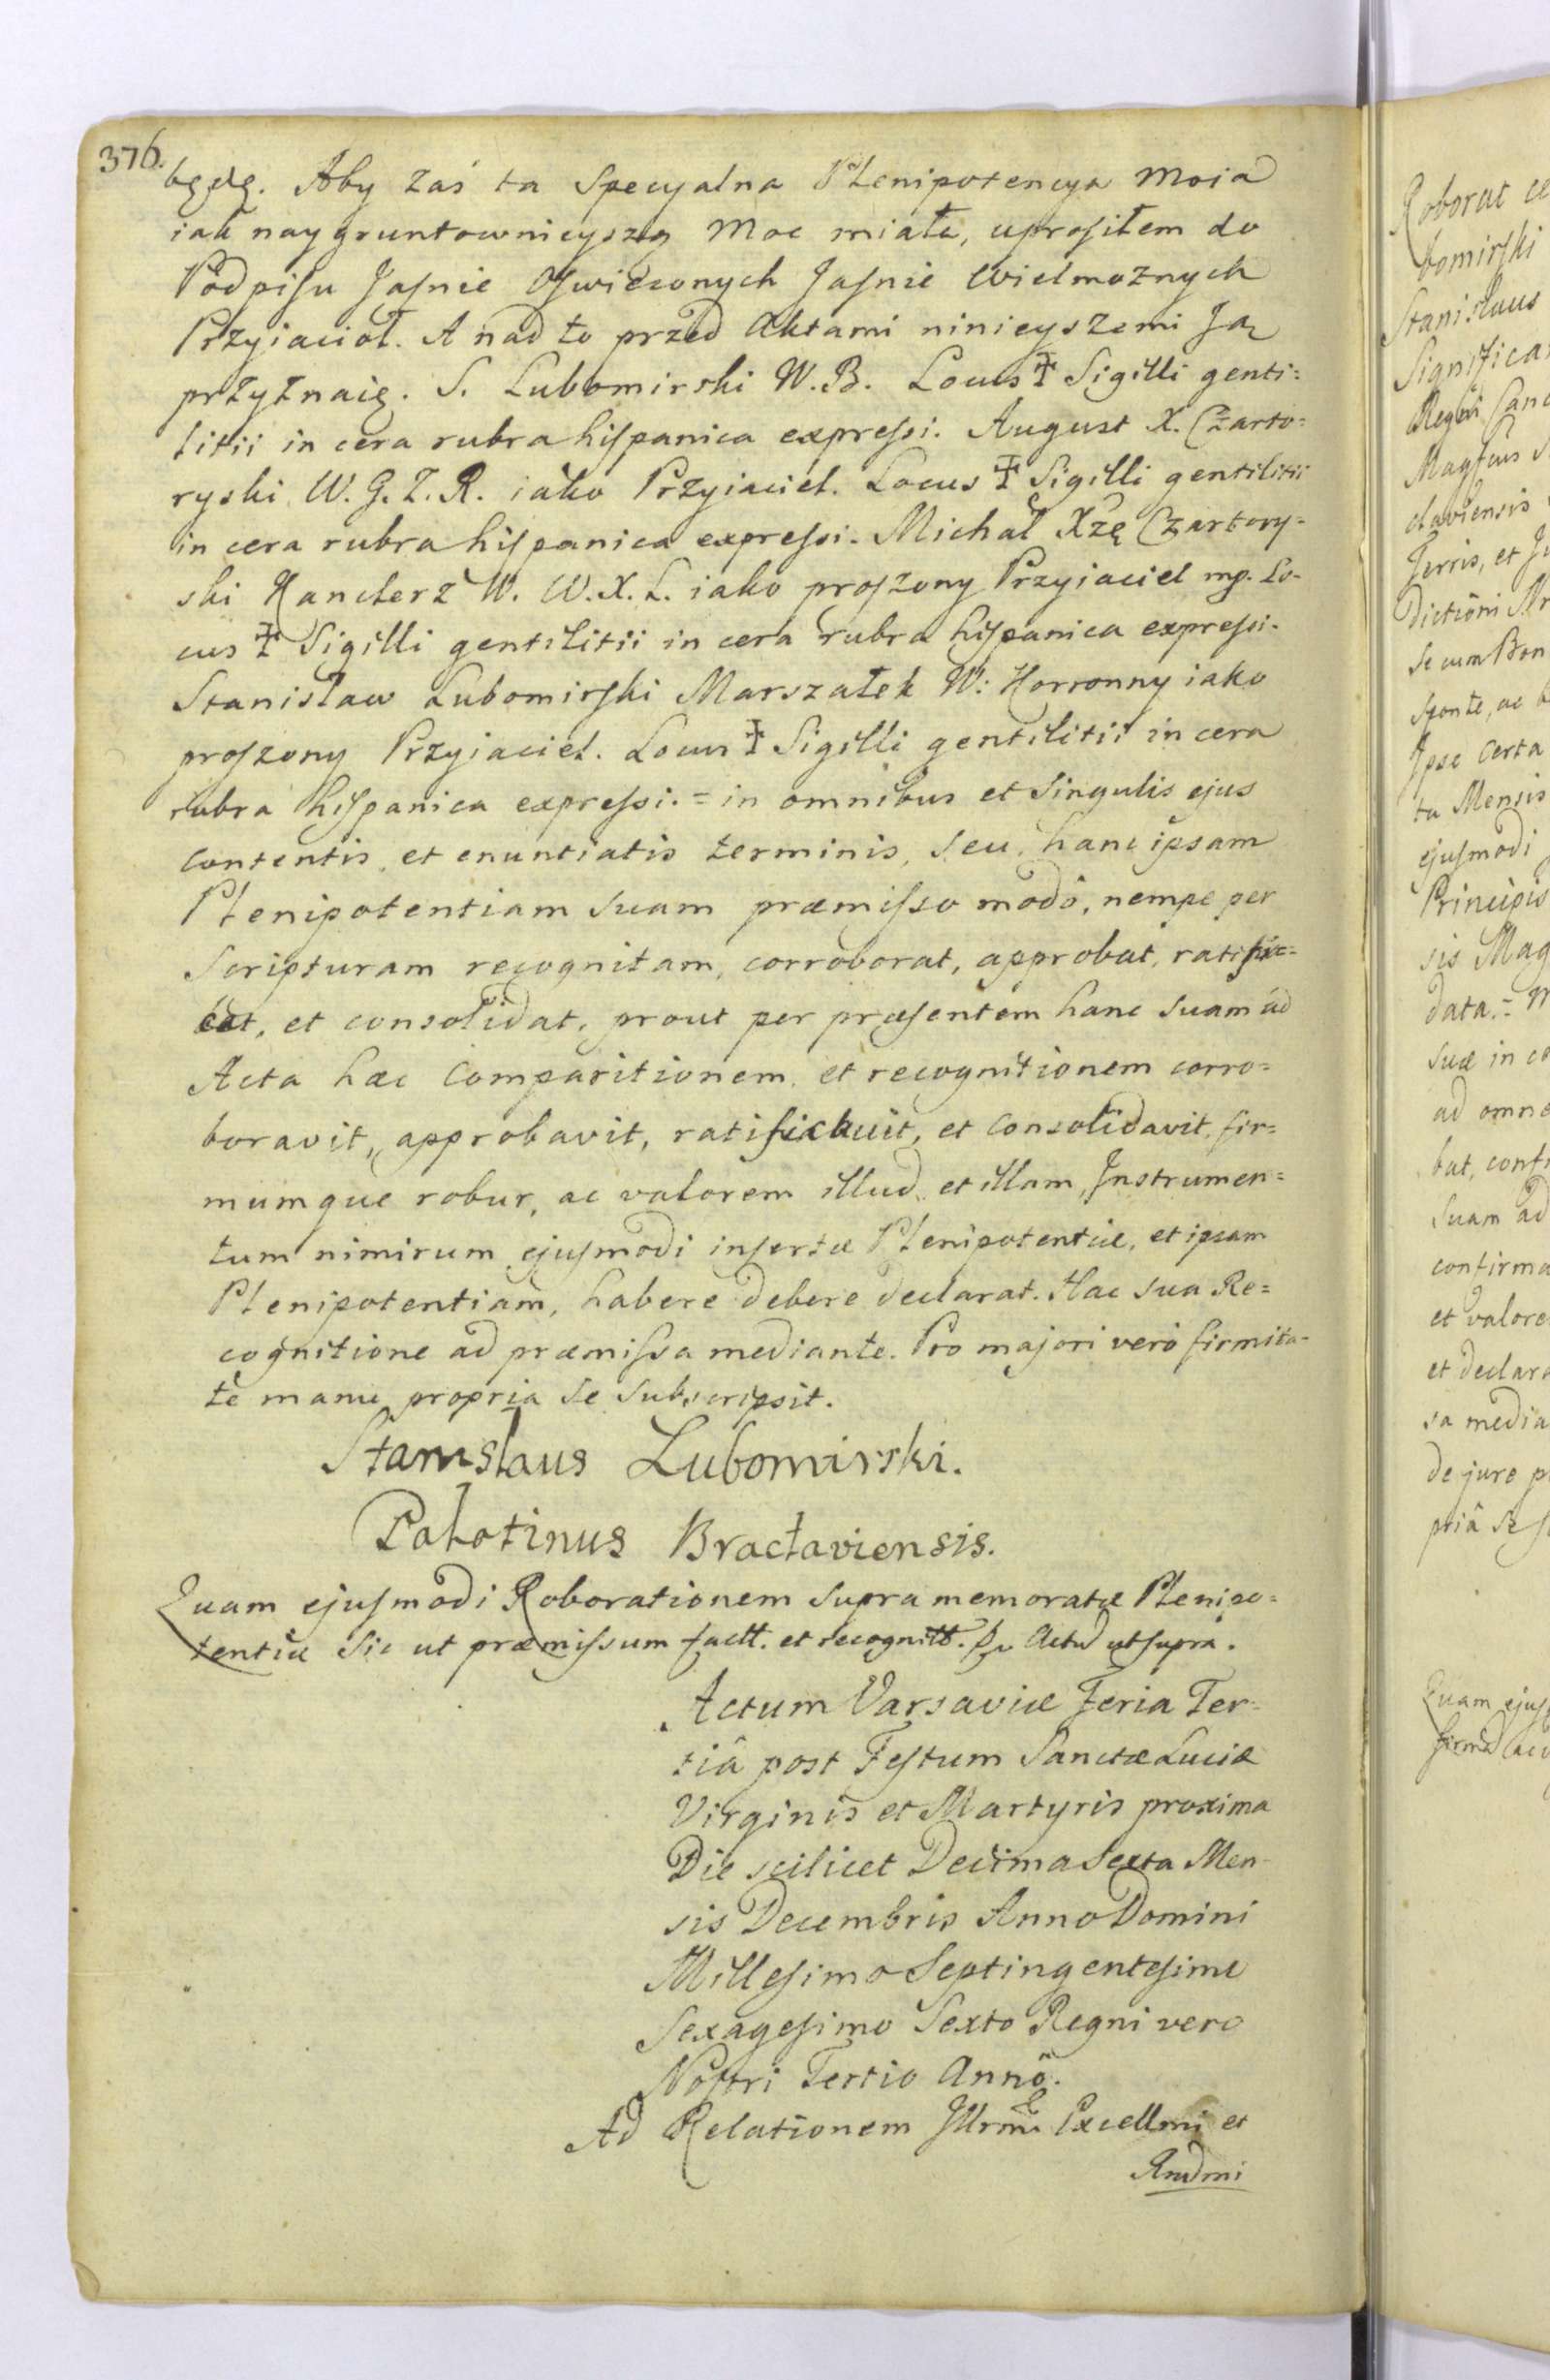 376.
będę. Aby zaś ta Specyalna Plenipotencya moia
iak naygruntownieyszą moc miała, uprosiłem do
Podpisu Jasnie Oswieconych Jasnie Wielmożnych
Przyiaciół. A nad to przed Aktami ninieyszemi Ją
przyznaię. S. Lubomirski W. B. Locus ‡ Sigilli genti=
litii in cera rubra hispanica expressi. August X. Czarto=
ryski W. G. Z. R. iako Przyiaciel. Locus ‡ Sigilli gentilitii
in cera rubra hispanica expressi. Michał Xżę Czartory=
ski Kanclerz W. W. X. L. iako proszony Przyiaciel mp. Lo-
cus ‡ Sigilli gentilitii in cera rubra hispanica expressi.
Stanisław Lubomirski Marszałek W: Korronny iako
proszony Przyiaciel. Locus ‡ Sigilli gentilitii in cera
rubra hispanica expressi. = in omnibus et singulis ejus
contentis, et enuntiatis terminis, seu hanc ipsam
Plenipotentiam suam præmisso modo, nempe per
Scripturam recognitam, corroborat, approbat, ratific=
cat, et consolidat, prout per præsentem hanc suam ad
Acta hæc Comparitionem, et recognitionem corro=
boravit, approbavit, ratificavit, et consolidavit, fir=
mumque robur, ac valorem illud, et illam, Instrumen=
tum nimirum ejusmodi insertæ Plenipotentiæ, et ipsam
Plenipotentiam, habere debere declarat. Hac sua Re=
cognitione ad præmissa mediante. Pro majori verò firmita-
te manu propria se subscripsit.
Stanislaus Lubomirski.
Palatinus Braclaviensis.
Quam ejusmodi Roborationem supra memoratæ Plenipo=
tentiæ sic ut præmissum factt. et recognitt. Actũ ut supra.
Actum Varsaviæ Feria Ter-
tiâ post Festum Sanctæ Luciæ
Virginis et Martyris proxima
Die scilicet Decima Sexta Men-
sis Decembris Anno Domini
Millesimo Septingentesimo
Sexagesimo Sexto Regni vero
Nostri Tertio Annô.
Ad Relationem Illrmi Excellmi et
Rndmi
Roborat
bomirski
Stanislaus
Regni
claviensis
Terris, et
dictioni
se cum
sponte, ac
Ipse Certa
ta Mensis
ejusmodi
Principis
sis Mag
data. =
suæ in
ad omne
bat, conf
suam ad
confirma
et valore
et declar
sa media
de jure
Quam ejus